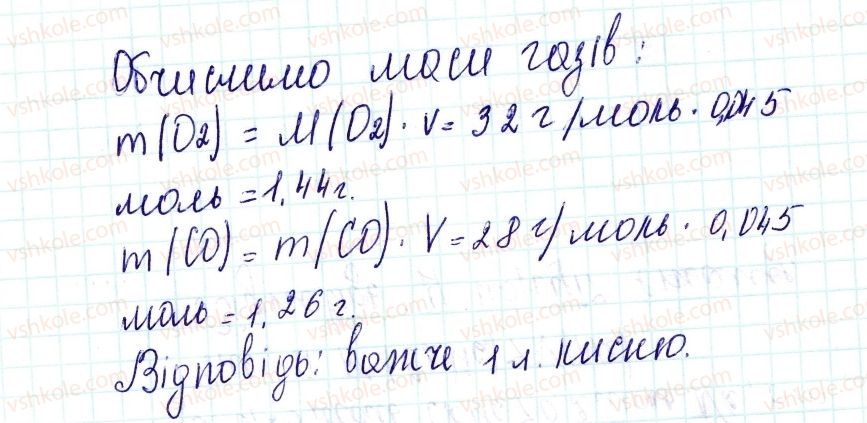 Обчислимо маси газів:
m(O2) = M(O2) · V = 32 г/моль · 0,045
моль = 1,44 г.
m(CO) = m(CO) · V = 28 г/моль · 0,045
моль = 1,26 г.
Відповідь: важче 1 л. кисню.